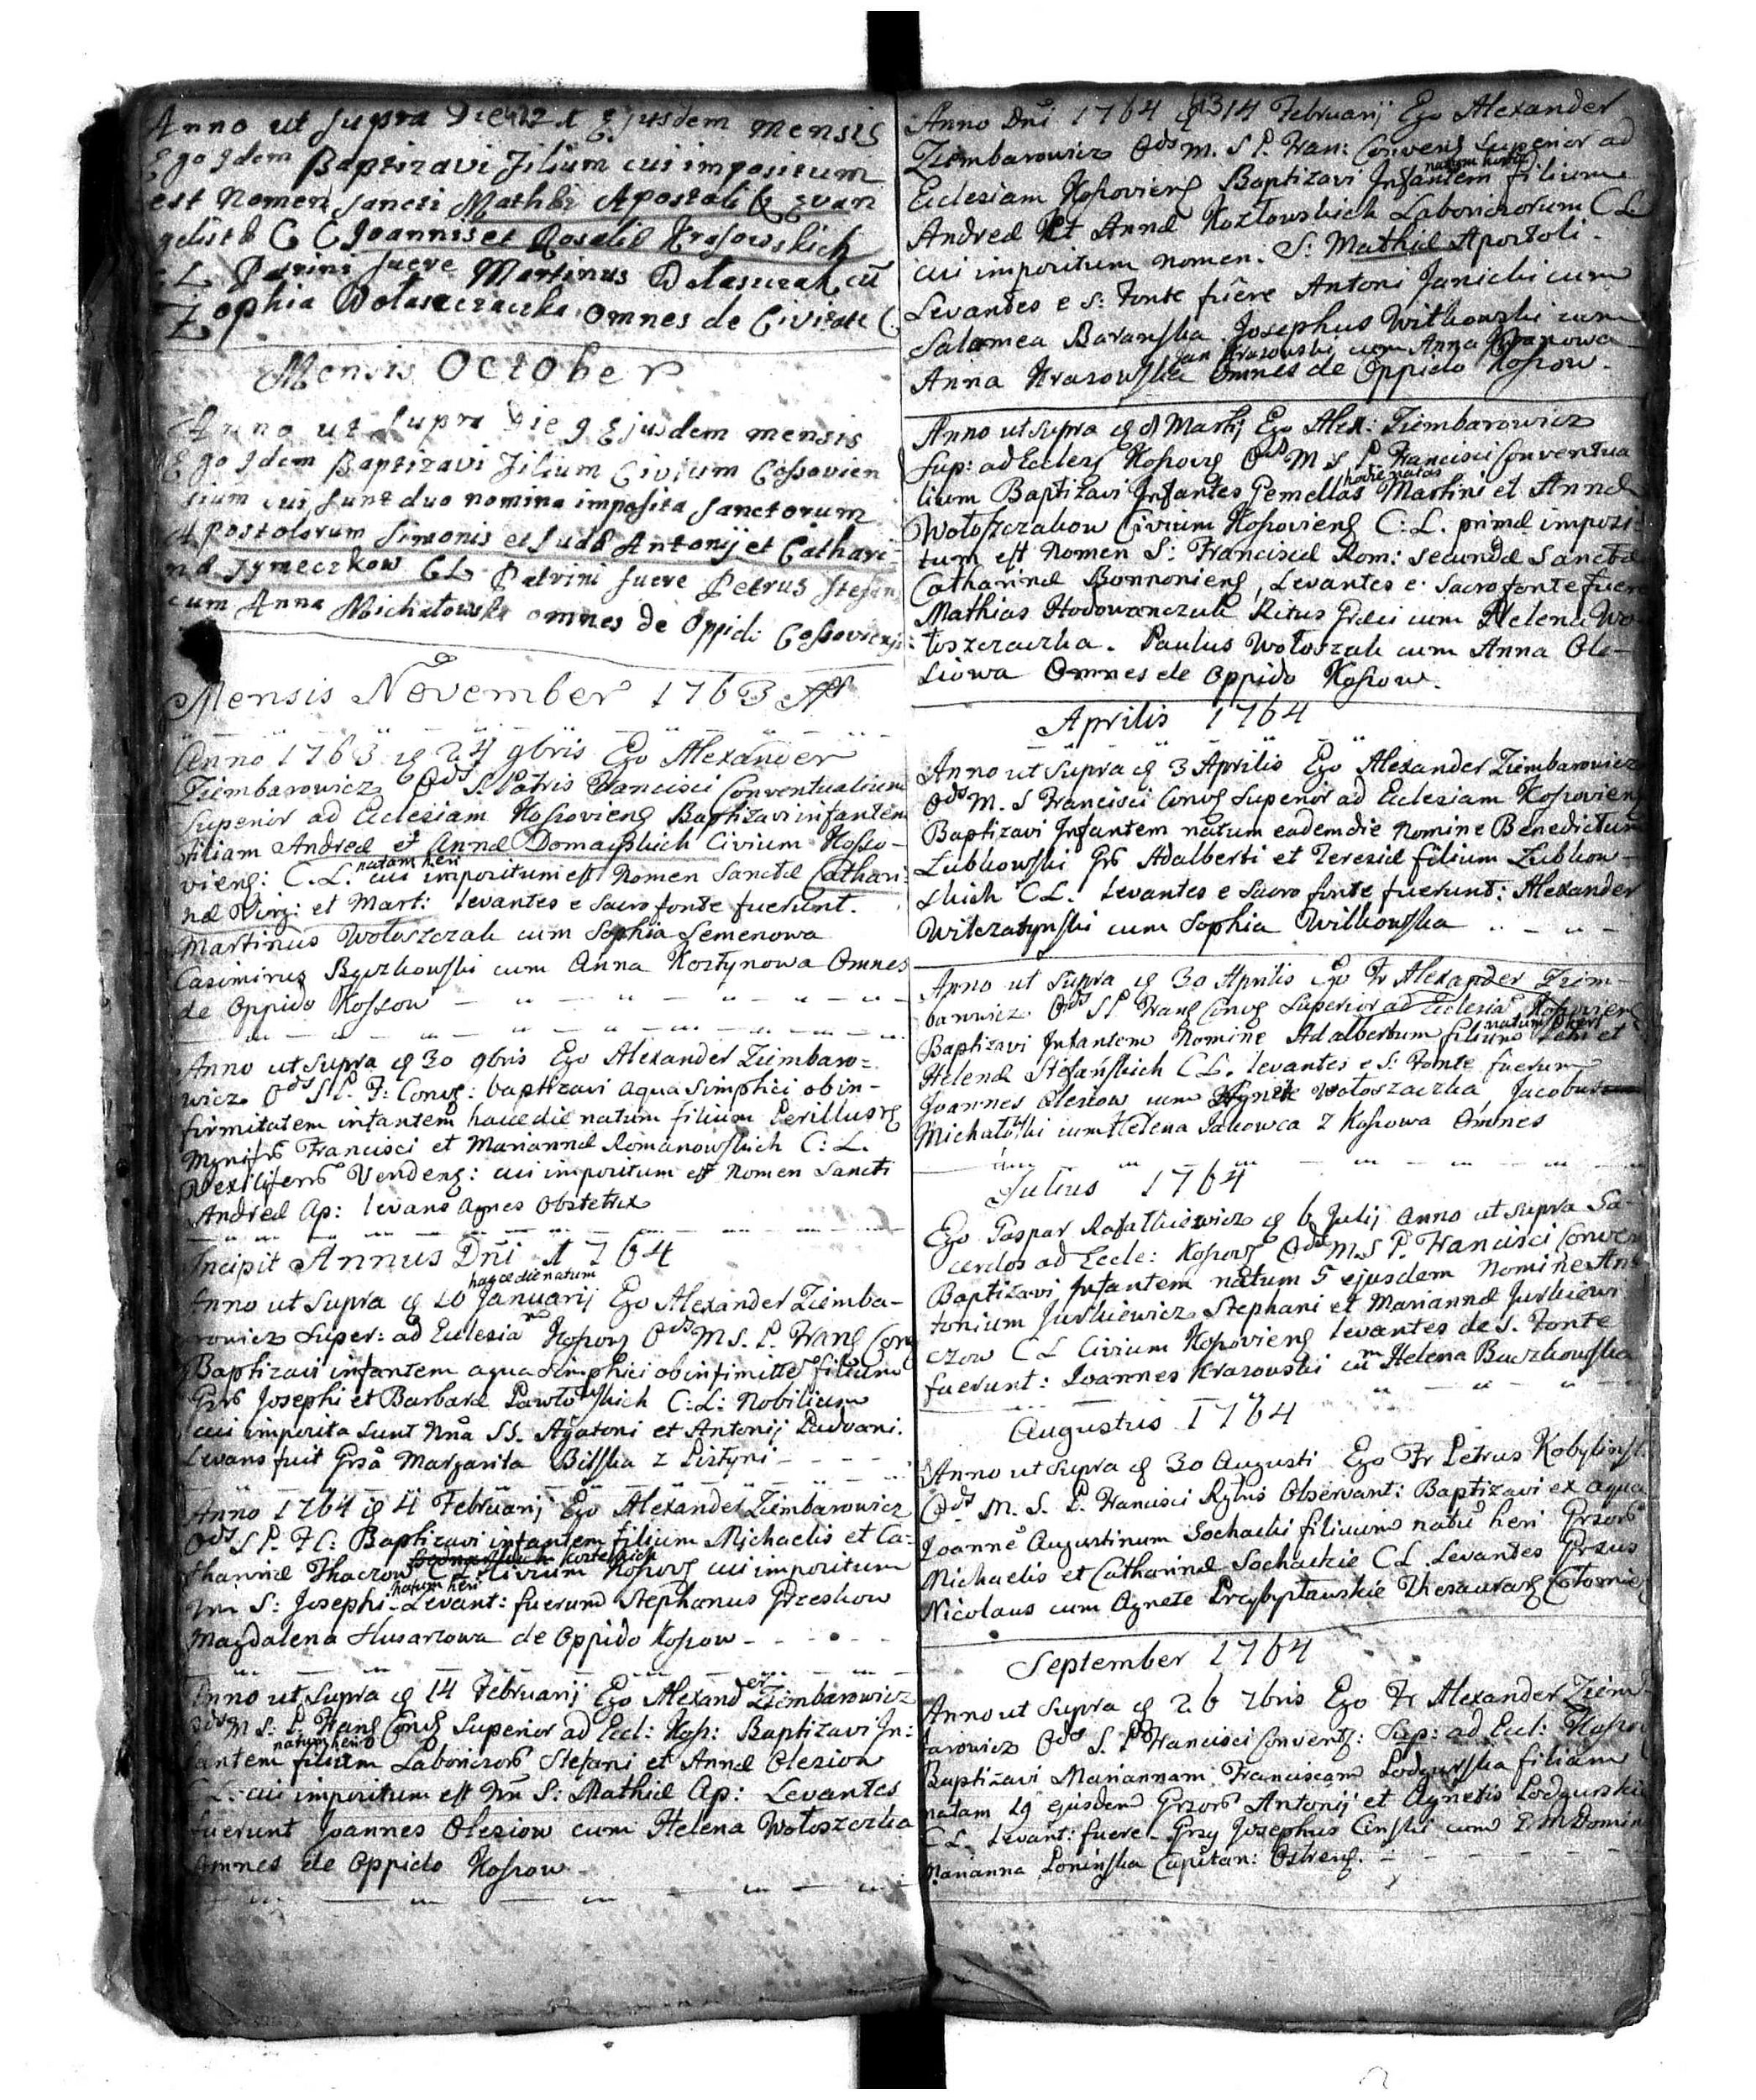 Anno ut supra Die 22 Ejusdem mensis
Ego Idem Baptizavi Filium cui impositum
est Nomen sancti Mathæi Apostoli Evan
gelistæ C C Joannis et Rosaliæ Krosowskich
C L Patrini fuere Martinus Wolaszczak cū
Zophia Wolaszczaczka omnes de Civitate C.
Mensis October
Anno ut supra Die 9 Ejusdem mensis
Ego Idem Baptizavi Filium Civium Cossovien
sium cui sunt duo nomina imposita sanctorum
Apostolorum Simonis et Judæ Antonij et Cathari-
næ Symeczkow CL Patrini fuere Petrus Stefan
cum Anna Michałowska omnes de Oppido Cossoviensi
Mensis November 1763
Anno 1763 24 9bris Ego Alexander
Ziembarowicz Ords S Patris Francisci Conventualium
Superior ad Ecclesiam Kossoviens Baptizavi infantem
filiam Andreæ et Annæ Domaƒskich Civium Kosso-
viens: C.L. natam heri cui impositum est Nomen Sanctæ Cathari-
næ Virg: et Mart: levantes e sacro fonte fuerunt.
Martinus Wołoszczak cum Sophia Semenowa
Casimirus Byczkowski cum Anna Kostynowa Omnes
de Oppido Kossow
Anno ut supra 30 9bris Ego Alexander Ziembaro=
wicz Ords S P. F: Conv: baptizavi aqua simplici ob in-
firmitatem infantem hac die natum filium Perillustrs
Mgnifrs Francisci et Mariannæ Romanowskich C: L.
Vexilliferrs Vendens: cui impositum est Nomen Sancti
Andreæ Ap: levans Agnes Obstetrix
Incipit Annus Dñi 1764
Anno ut supra 10 Januarij hacce die natum Ego Alexander Ziemba-
rowicz Super: ad Ecclesiam Kossovs Ords M S. P. Frans Conv
Baptizavi infantem aqua simplici ob infirmitte filium
Grs Josephi et Barbaræ Pawłowskich C: L: Nobilium
cui imposita sunt Nña SS. Agatoni et Antonij Paduani.
Levans fuit Grsa Margarita Bilska z Pistyni
Anno 1764 4 Februarij Ego Alexander Ziembarowicz
Ords S P. F C: Baptizavi infantem filium Michaelis et Ca-
tharinæ Tkaczow CL Civium Kossovs cui impositum
Nñ S: Josephi natum heri Levant: fuerunt Stephanus Grzeskow
Magdalena Husarzowa de Oppido Kossow
Anno ut supra 14 Februarij Ego Alexander Ziembarowicz
Ords M S: P. Frans Convs Superior ad Eccl: Koss: Baptizavi In:
fantem natum heri filium Laboriosors Stefani et Annæ Olexiow
C L: cui impositum est Nñ S: Mathiæ Ap: Levantes
fuerunt Joannes Olexiow cum Helena Wołoszczka
Omnes de Oppido Kossow
Anno Dñi 1764 14 Februarij Ego Alexander
Ziembarowicz Ords M. S P. Fran: Convens Superior ad
Ecclesiam Kossoviens Baptizavi Infantem natum heri filium
Andreæ et Annæ Kozłowskich Laboriosorum C L.
cui impositum nomen S: Mathiæ Apostoli.
Levantes e s: fonte fuere Antoni Janicki cum
Salomea Baranska. Josephus Witkowski cum
Anna Krasowska Jan Krasowski cum Anna Iwanowa Omnes de Oppido Kossow.
Anno ut supra Martij Ego Alex: Ziembarowicz
Sup: ad Eccles Kossovs Ords M S P Francisci Conventua
lium Baptizavi Infantes Gemellas hodie natas Martini et Annæ
Wołoszczakow Civium Kossoviens C: L. primæ imposi-
tum est Nomen S: Franciscæ Rom: secundæ Sanctæ
Catharinæ Bonnoniens, Levantes e sacro fonte fuere
Mathias Hodowanczuk Ritus Græci cum Helena Wo-
łoszczaczka. Paulus Wołoszak cum Anna Ole-
siowa Omnes de Oppido Kossow.
Aprilis 1764
Anno ut supra 3 Aprilis Ego Alexander Ziembarowicz
Ords M. S Francisci Convs Superior ad Ecclesiam Kossoviens
Baptizavi Infantem natum eadem die Nomine Benedictum
Lubkowski Grs Adalberti et Teresiæ filium Lubkow-
skich C L. levantes e sacro fonte fuerunt: Alexander
Wilczatynski cum Sophia Wilkowska
Anno ut supra 30 Aprilis Ego Fr Alexander Ziem-
barowicz Ords S P Frans Convs Superior ad Ecclesiā Kossoviens
Baptizavi Infantem Nomine Adalbertum filium natum heri Petri et
Helenæ Stefańskich C L. levantes e S: Fonte fuerunt
Joannes Olexiow cum Agnete Wołoszaczka, Jacobus
Michałowski cum Helena Jakowca z Kossowa Omnes
Julius 1764
Ego Gaspar Rafałkiewicz 6 Julij Anno ut supra Sa-
cerdos ad Eccle: Kossovs Ords M. S P. Francisci Conven
Baptizavi Infantem natum 5 ejusdem Nomine An-
tonium Jurkiewicz Stephani et Mariannæ Jurkiewi
czow C L Civium Kossoviens levantes de S. Fonte
fuerunt: Joannes Krasowski cum Helena Buczkowska
Augustus 1764
Anno ut supra 30 Augusti Ego Fr Petrus Kobylinsk
Ords M. S. P. Francisci Rgtus Observant: Baptizavi ex aqua
Joannē Augustinum Sochacki filium natū heri Grsors
Michaelis et Catharinæ Sochackie C L. Levantes Grsus
Nicolaus cum Agnete Przybysławskie Thesaurars Colomie
September 1764
Anno ut supra 26 7bris Ego Fr Alexander Ziem-
barowicz Ords S. P Francisci Convents: Sup: ad Eccl: Kossov
Baptizavi Mariannam Franciscam Lodgurska filiam
natam 19 ejusdem Grsors Antonij et Agnetis Lodgurskie
C L. Levant: fuere Grsy Josephus Cinski cum
Marianna Loninska Capitan: Ostrens.